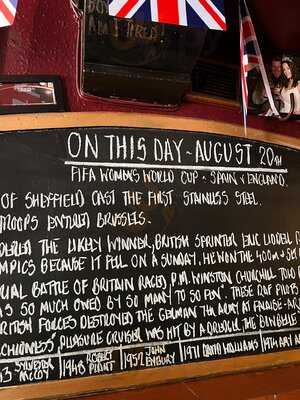 ON THIS DAY - AUGUST 20TH
FIFA WOMENS WORLD CUP : SPAIN V ENGLAND.
OF SHEFFIELD CAST THE FIRST STAINLESS STEEL.
TROOPS ENTERED BRUSSELS.
THE LIKELY WINNER, BRITISH SPRINTER ERIC LIDDELL
MPICS BECAUSE IT FELL ON A SUNDAY. HE WON THE 400M
UAL BATTLE OF BRITAIN RACED, P.M. WINSTON CHURCHILL TOLD
AS SO MUCH OWED BY SO MANY TO SO FEW". THESE RAF PILOTS
RITISH FORCES DESTROYED THE GERMAN 7TH ARMY AT FALAISE-
PLEASURE CRUISER WAS HIT BY A DREDGER THE BOWBELLE
13 SYLVESTER MCCOY 1948 ROBERT PLANT 1952 JOHN EMBURY 1971 DAVID WALLIAMS